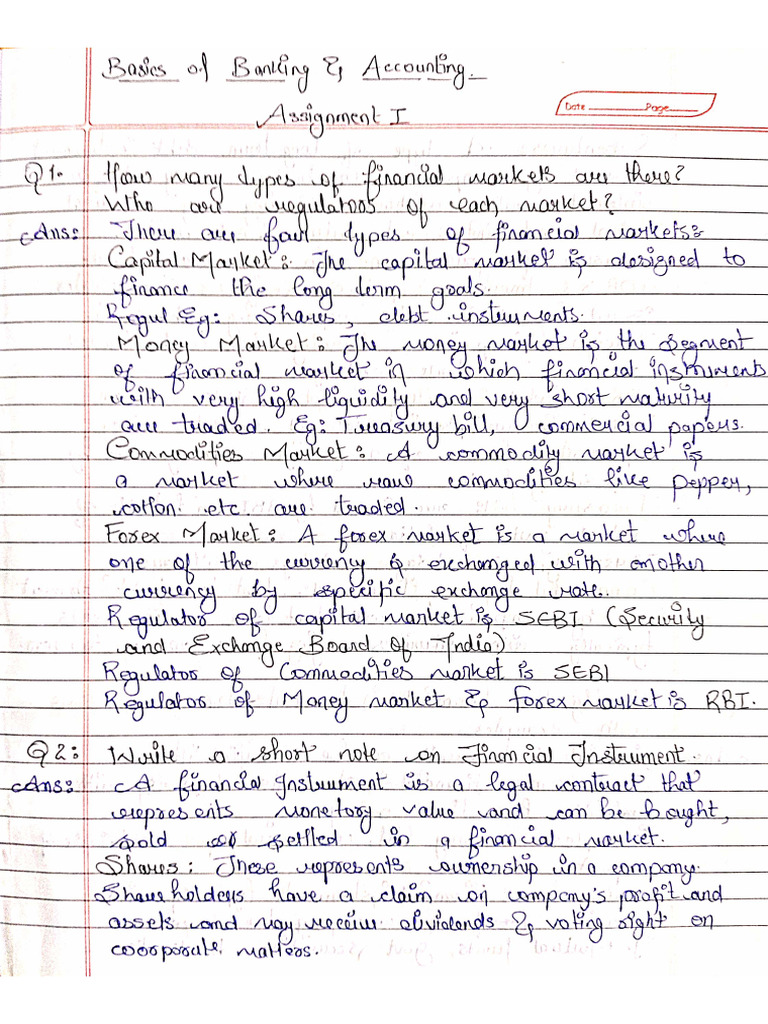 Basics of Banking & Accounting.
Assignment I
Date Page
Q1. How many types of financial markets are there?
Who are regulators of each market?
Ans: There are four types of financial markets:
Capital Market: The capital market is designed to
finance the long term goals.
Regul Eg: Shares, debt instruments.
Money Market: The money market is the segment
of financial market in which financial instruments
with very high liquidity and very short maturity
are traded. Eg: Treasury bill, commercial papers.
Commodities Market: A commodity market is
a market where raw commodities like pepper,
cotton etc are traded.
Forex Market: A forex market is a market where
one of the currency is exchanged with another
currency by specific exchange rate.
Regulator of capital market is SEBI (Security
and Exchange Board of India)
Regulator of Commodities market is SEBI
Regulator of Money market & forex market is RBI.
Q2: Write a short note on Financial Instrument.
Ans: A financial Instrument is a legal contract that
represents monetory value and can be bought,
sold or settled in a financial market.
Shares: These represents ownership in a company.
Shareholders have a claim on company's profit and
assets and may receive dividends & voting right on
coorporate matters.